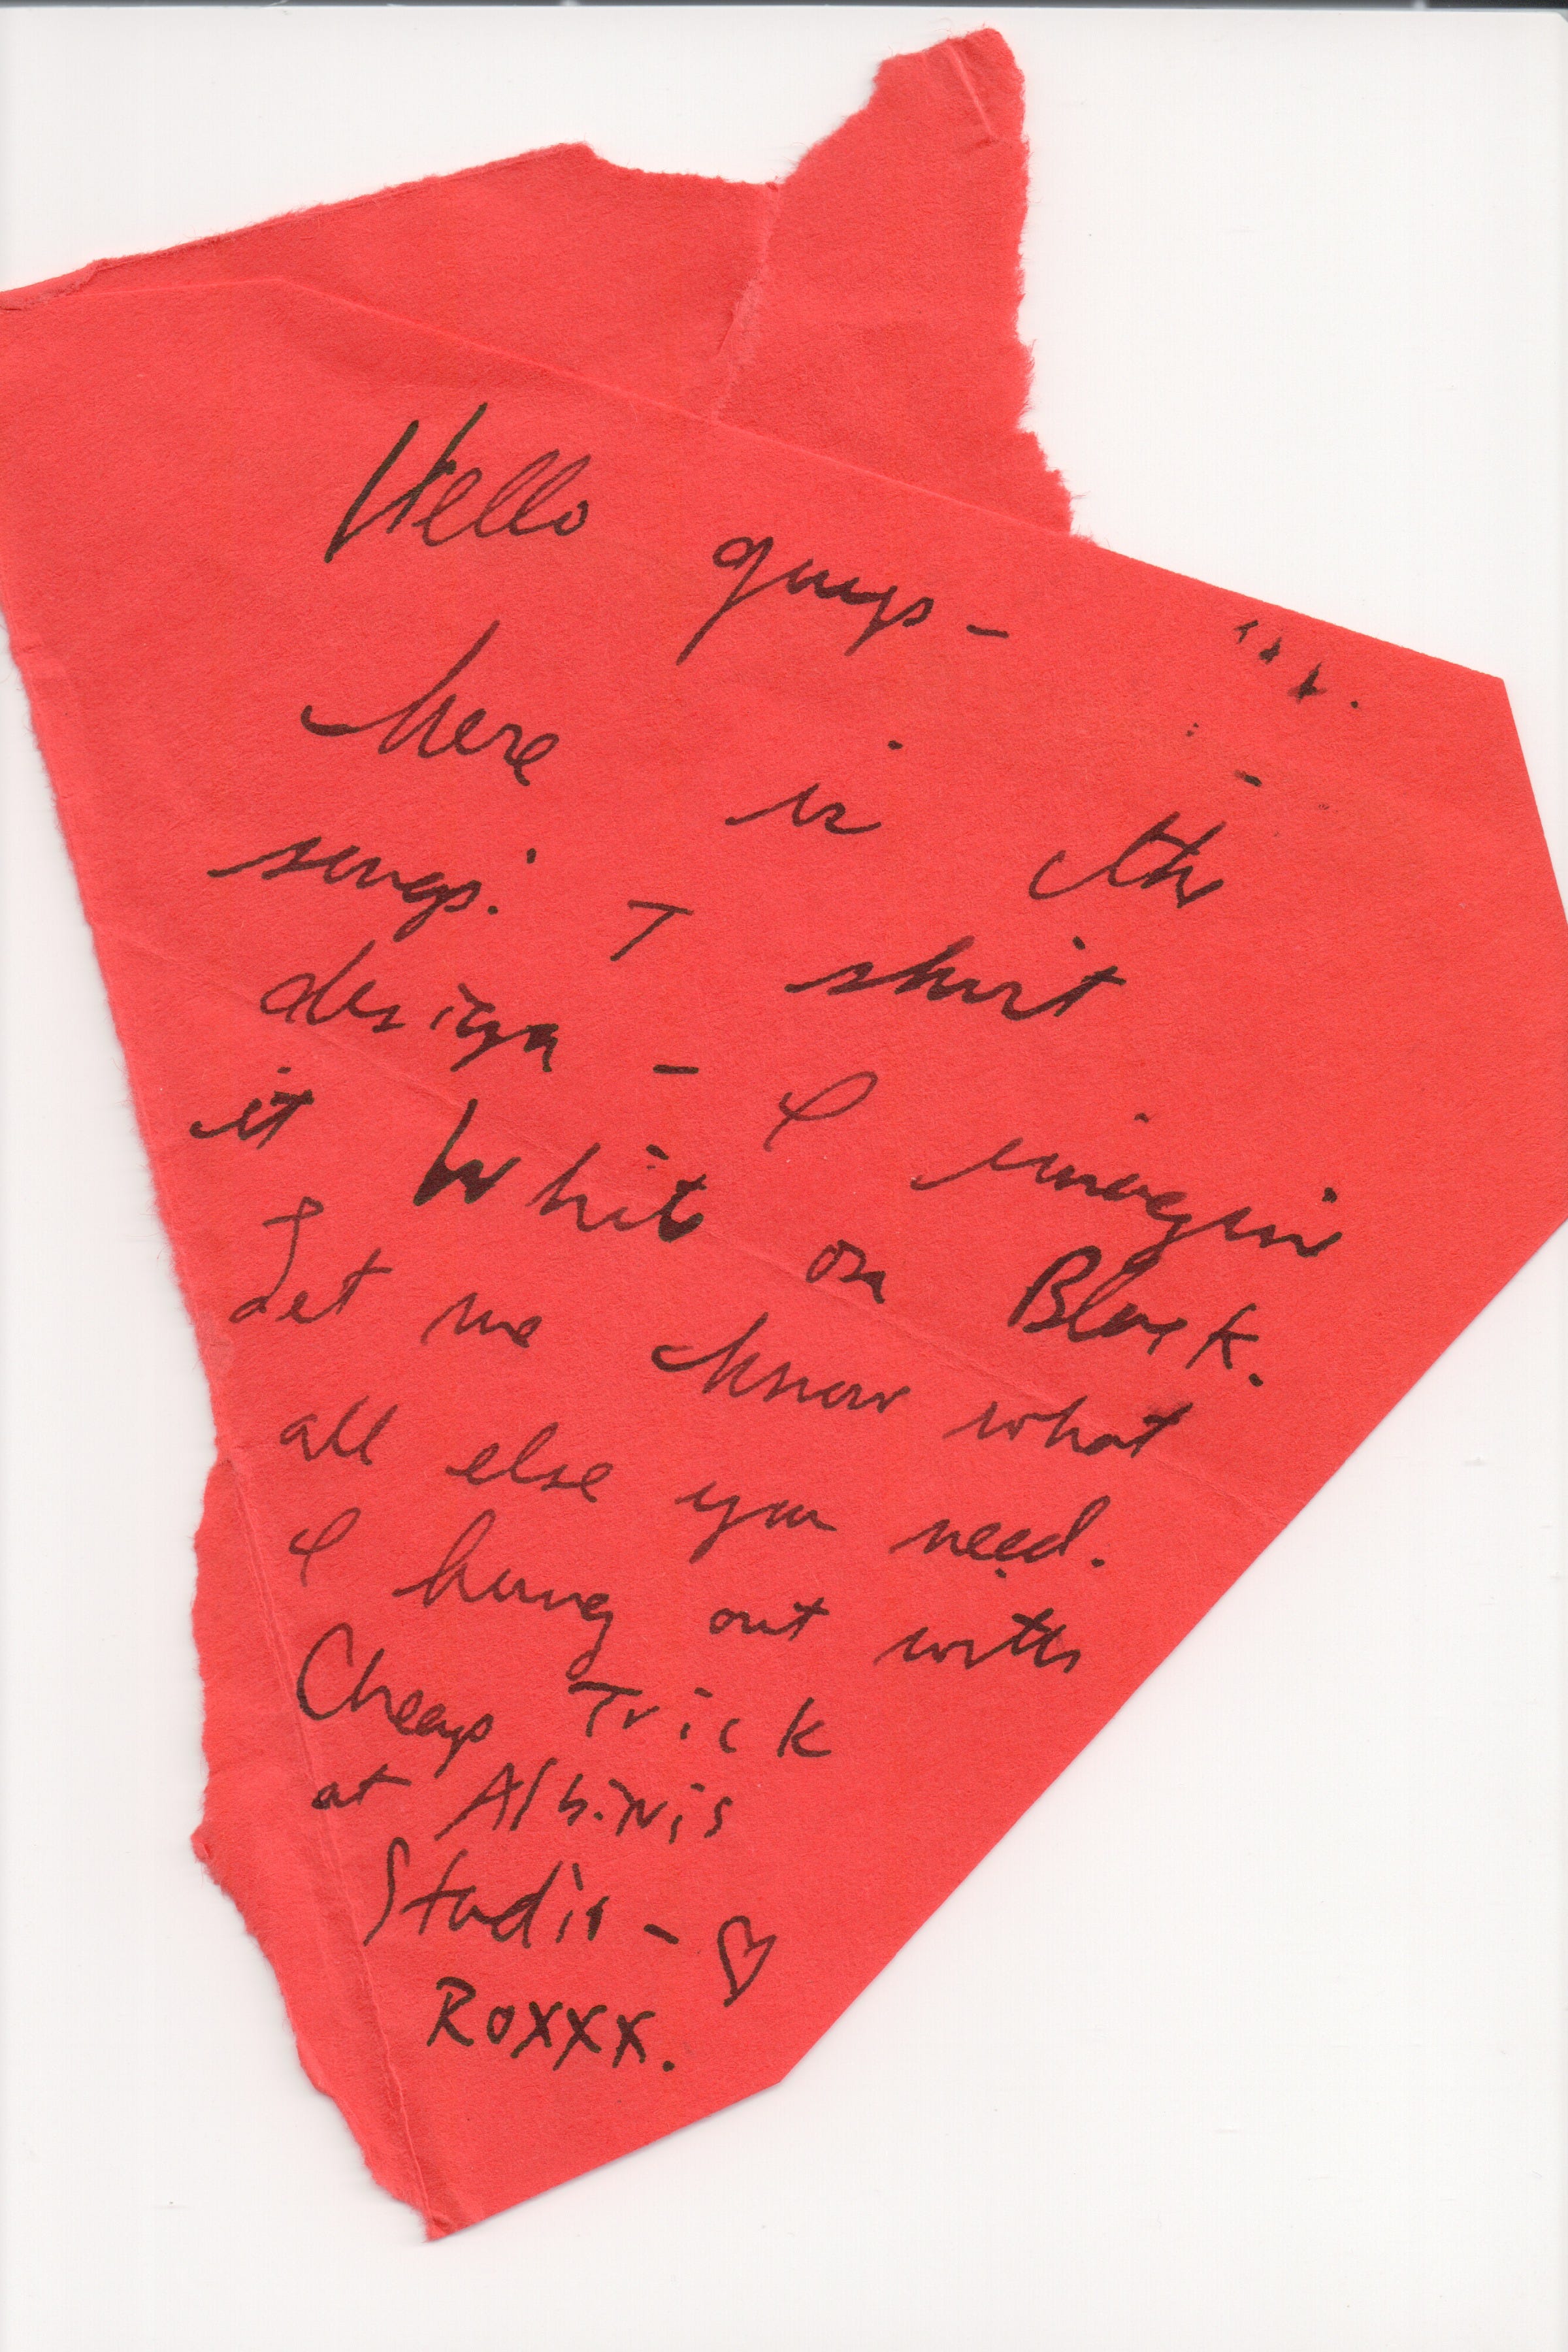 Hello guys -
here is the
songs: T shirt
design - I imagin
it White on Black.
Let me know what
all else you need.
I hung out with
Cheap Trick
at Albinis
Studio - ♡
Roxxx.